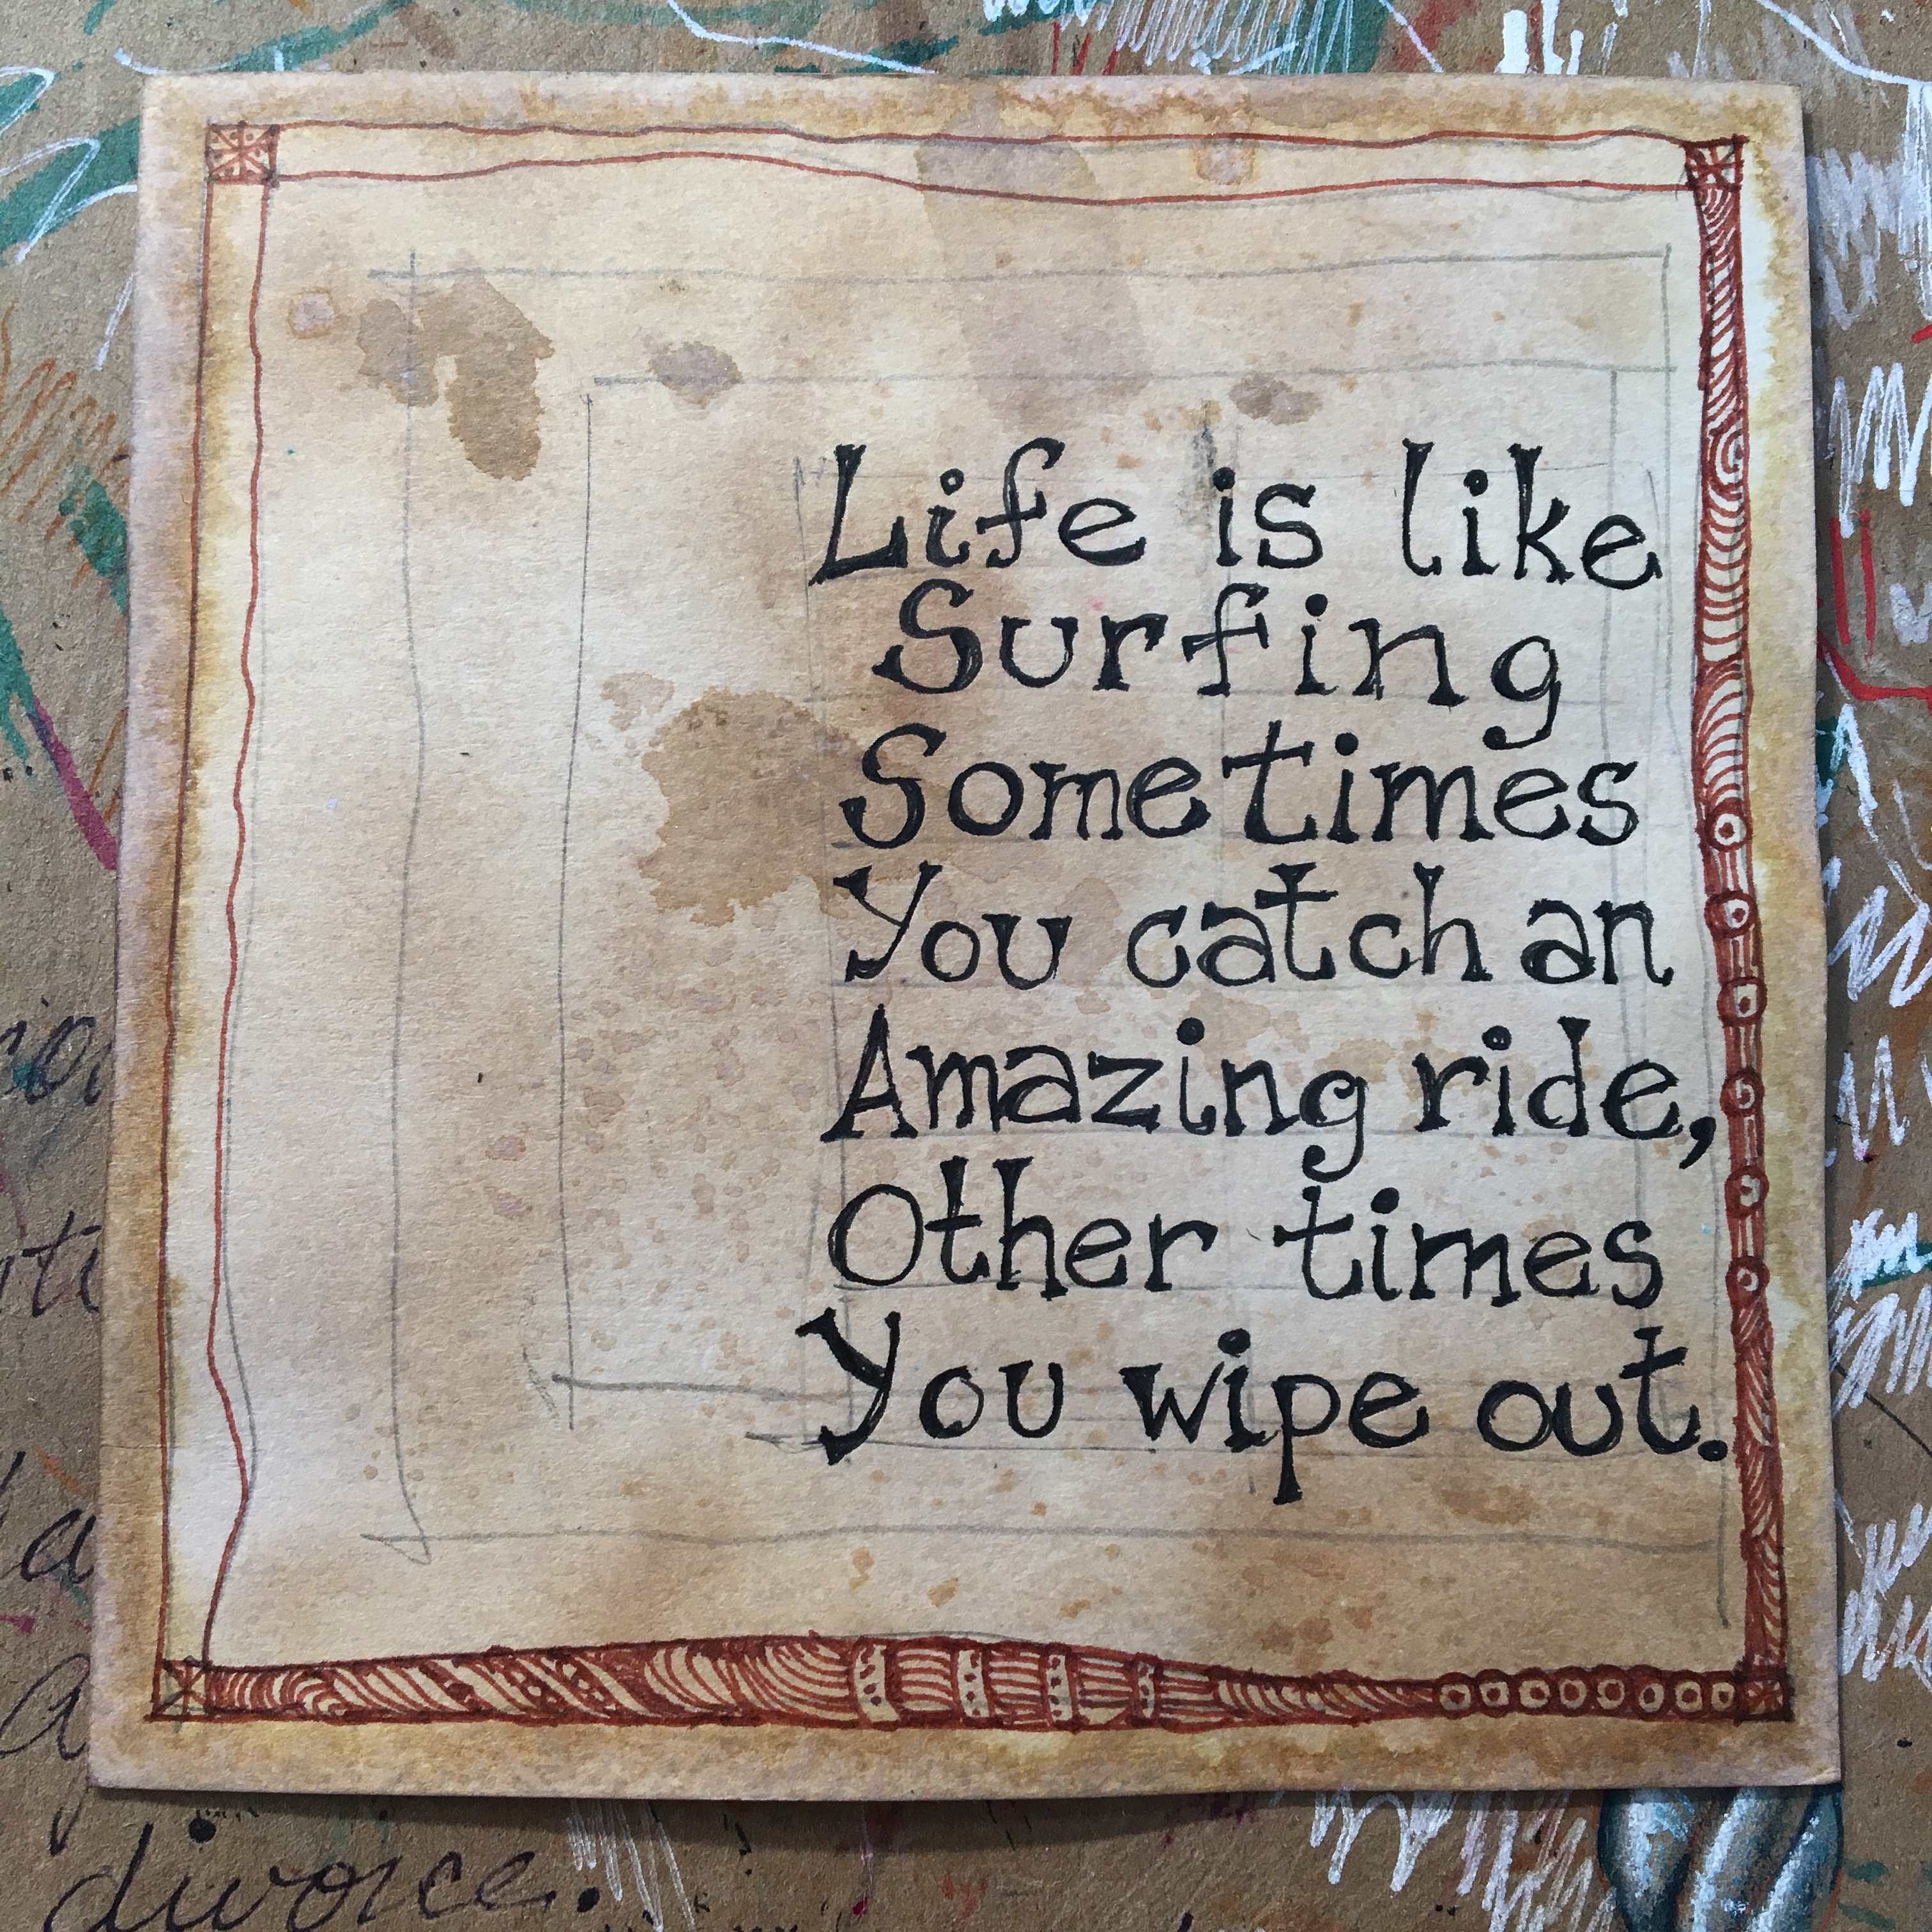 Life is like
Surfing
Sometimes
You catch an
Amazing ride,
Other times
You wipe out.
divorce.